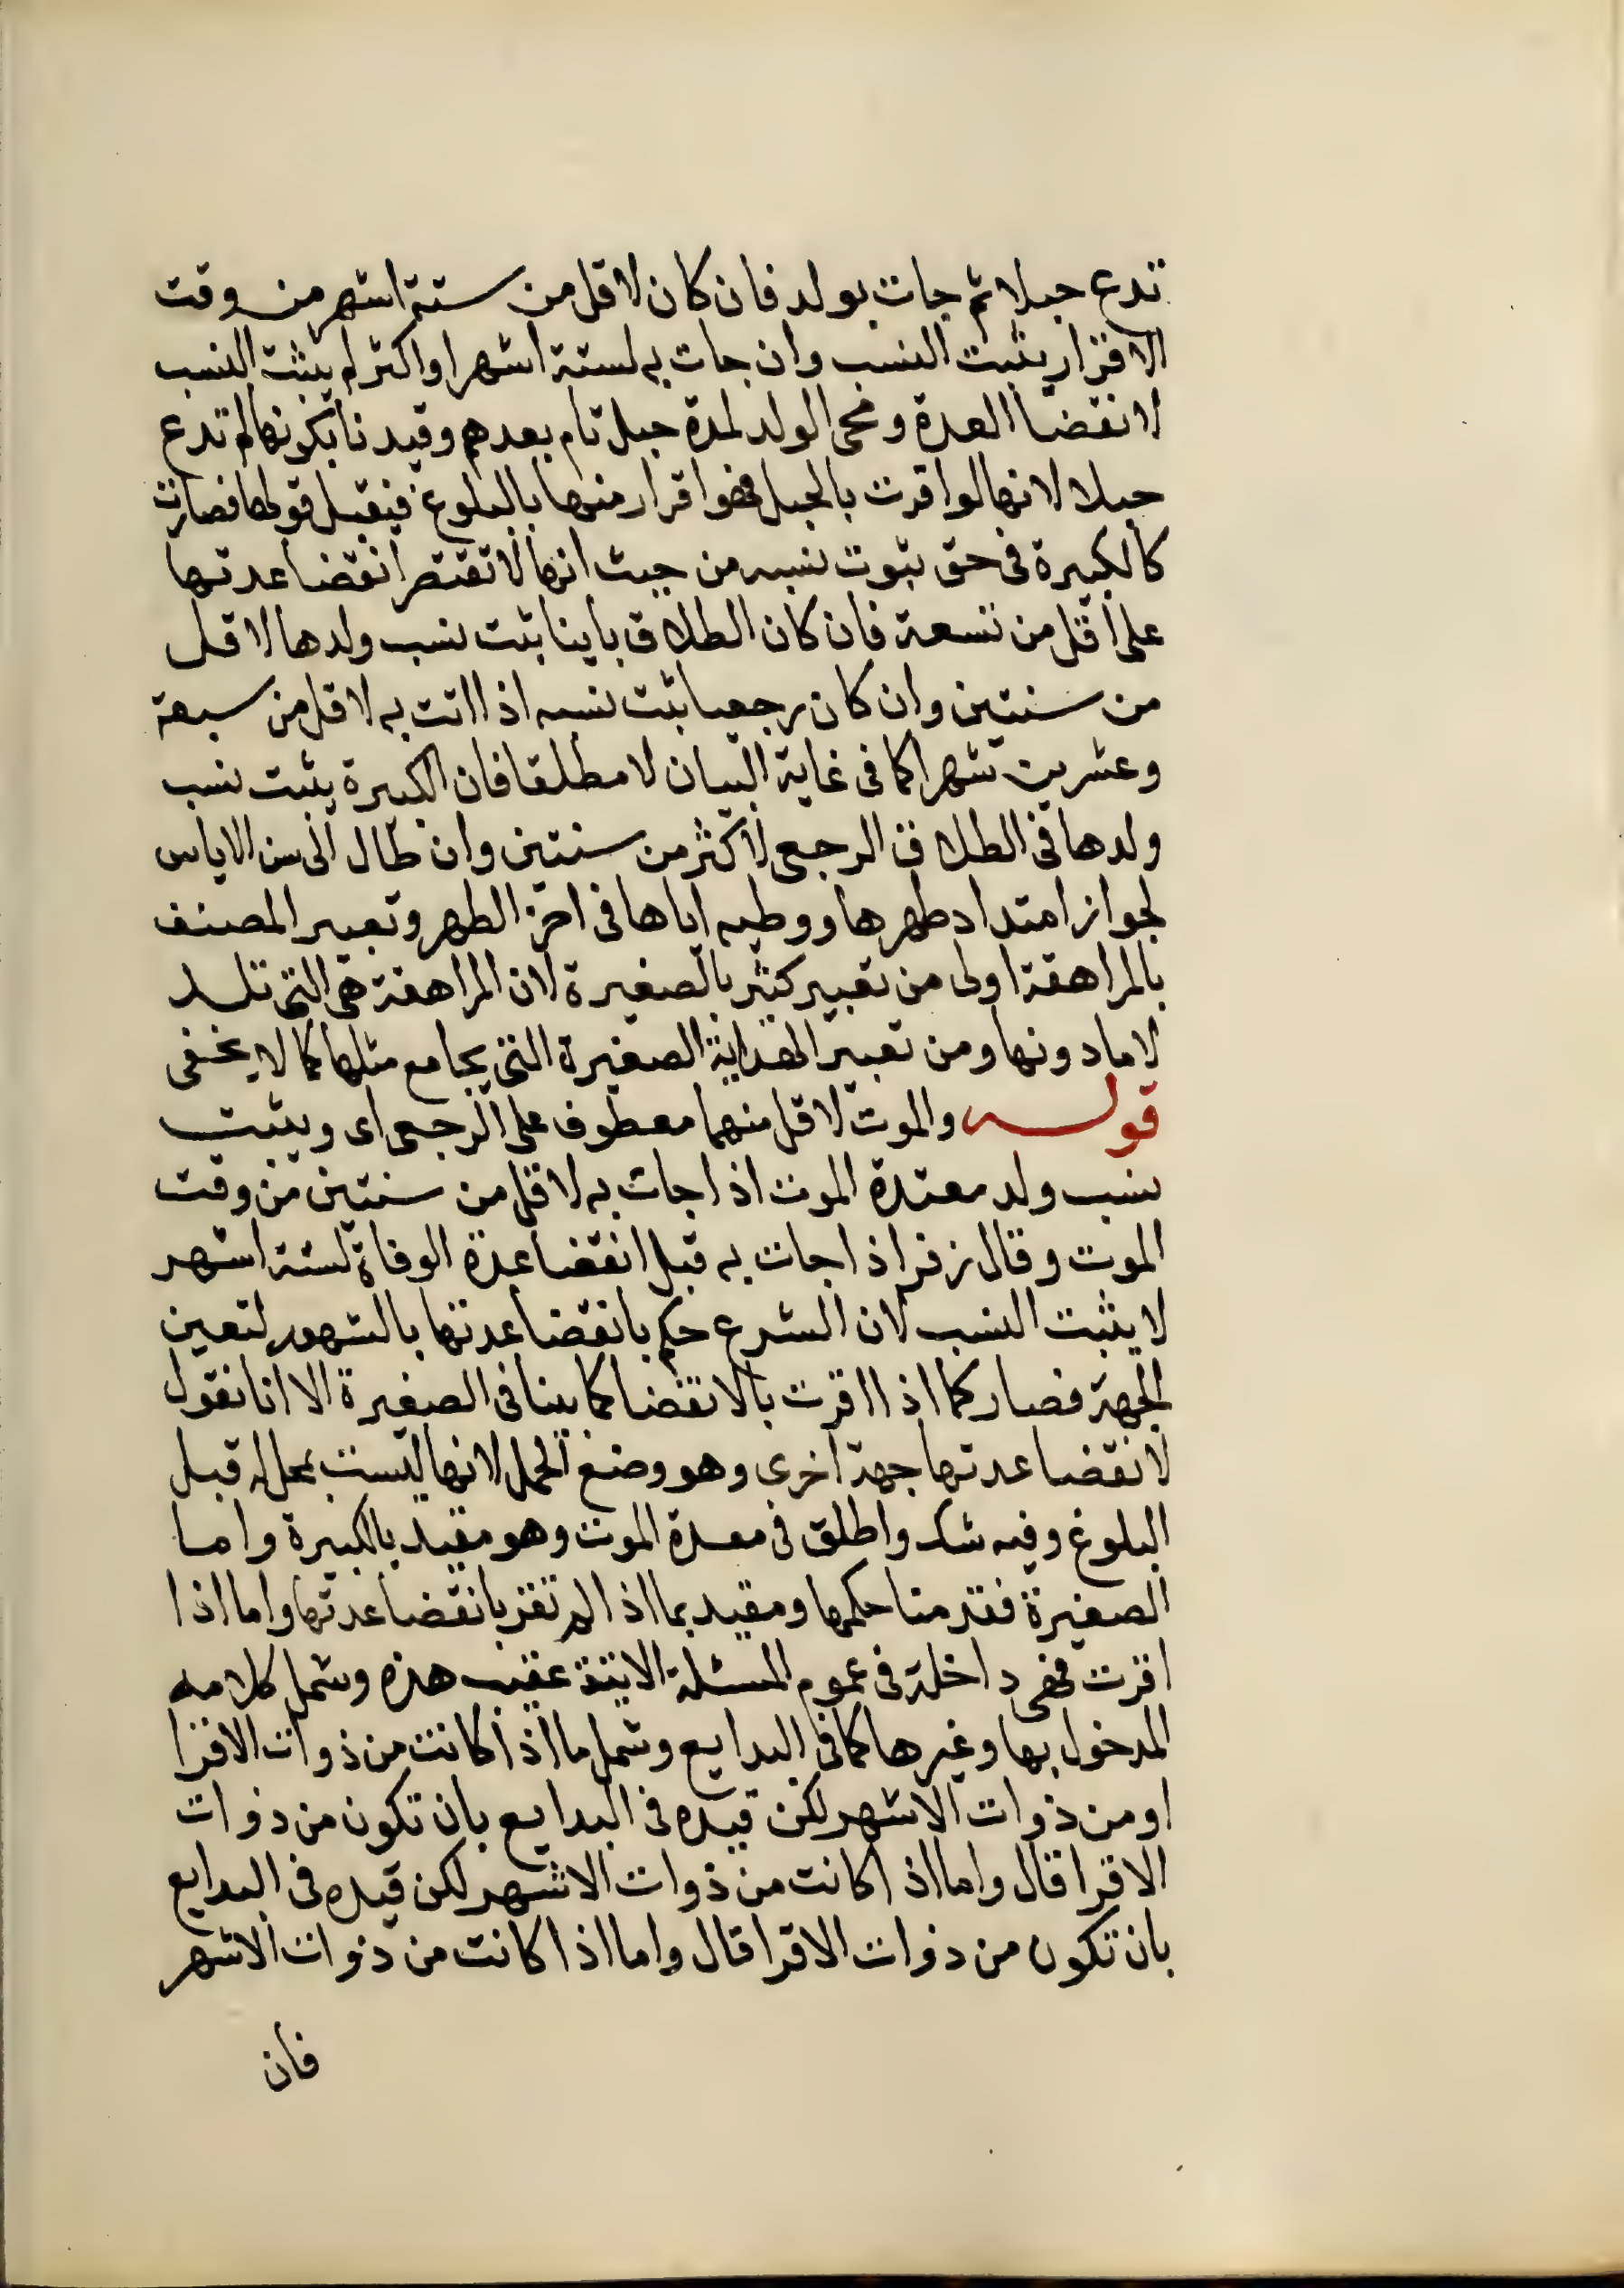 تدع حبلا ثم جات بولد فان كان لاقل من ستة اشهر من وقت
الاقرار يثبت النسب وان جات به لستة اشهر او اكثر لم يثبت النسب
لانقضا العدة ومجى الولد لمدة حبل تام بعدهم وقيدنا بكونها لم تدع
حبلا لانها لو اقرت بالحبل فهو اقرار منها بالبلوغ فيقبل قولها فصارت
كالكبيرة فى حق ثبوت نسبه من حيث انها لا تقتصر انقضا عدتها
على اقل من تسعة فان كان الطلاق باينا يثبت نسب ولدها لاقل
من سنتين وان كان رجعيا يثبت نسبه اذا اتت به لاقل من سبعة
وعشرين شهرا كما فى غاية البيان لا مطلقا فان الكبيرة يثبت نسب
ولدها فى الطلاق الرجعى لاكثر من سنتين وان طال الى سن الاياس
لجواز امتداد طهرها ووطيه اياها فى اخر الطهر وتعبير المصنف
بالمراهقة اولى من تعبير كثير بالصغيرة لان المراهقة هى التى تلد
لا ما دونها ومن تعبير الهداية الصغيرة التى يجامع مثلها كما لا يخفى
قوله والموت لاقل منهما معطوف على الرجعى اى ويثبت
نسب ولد معتدة الموت اذا جات به لاقل من سنتين من وقت
الموت وقال زفر اذا جات به قبل انقضا عدة الوفاة لستة اشهر
لا يثبت النسب لان الشرع حكم بانقضا عدتها بالشهور لتعين
الجهة فصار كما اذا اقرت بالانقضا كما بينا فى الصغيرة الا انا نقول
لانقضا عدتها جهة اخرى وهو وضع الحمل لانها ليست بمحل له قبل
البلوغ وفيه شك واطلق فى معدة الموت وهو مقيد بالكبيرة واما
الصغيرة فقدمنا حكمها ومقيد بما اذا لم تقر بانقضا عدتها واما اذا
اقرت فهى داخلة فى عموم المسئلة الاتية عقيب هذه وشمل كلامه
المدخول بها وغيرها كما فى البدايع وشمل ما اذا كانت من ذوات الاقرا
او من ذوات الاشهر لكن قيده فى البدايع بان تكون من ذوات
الاقرا قال واما اذا كانت من ذوات الاشهر لكن قيده فى البدايع
بان تكون من ذوات الاقرا قال واما اذا كانت من ذوات الاشهر
فان